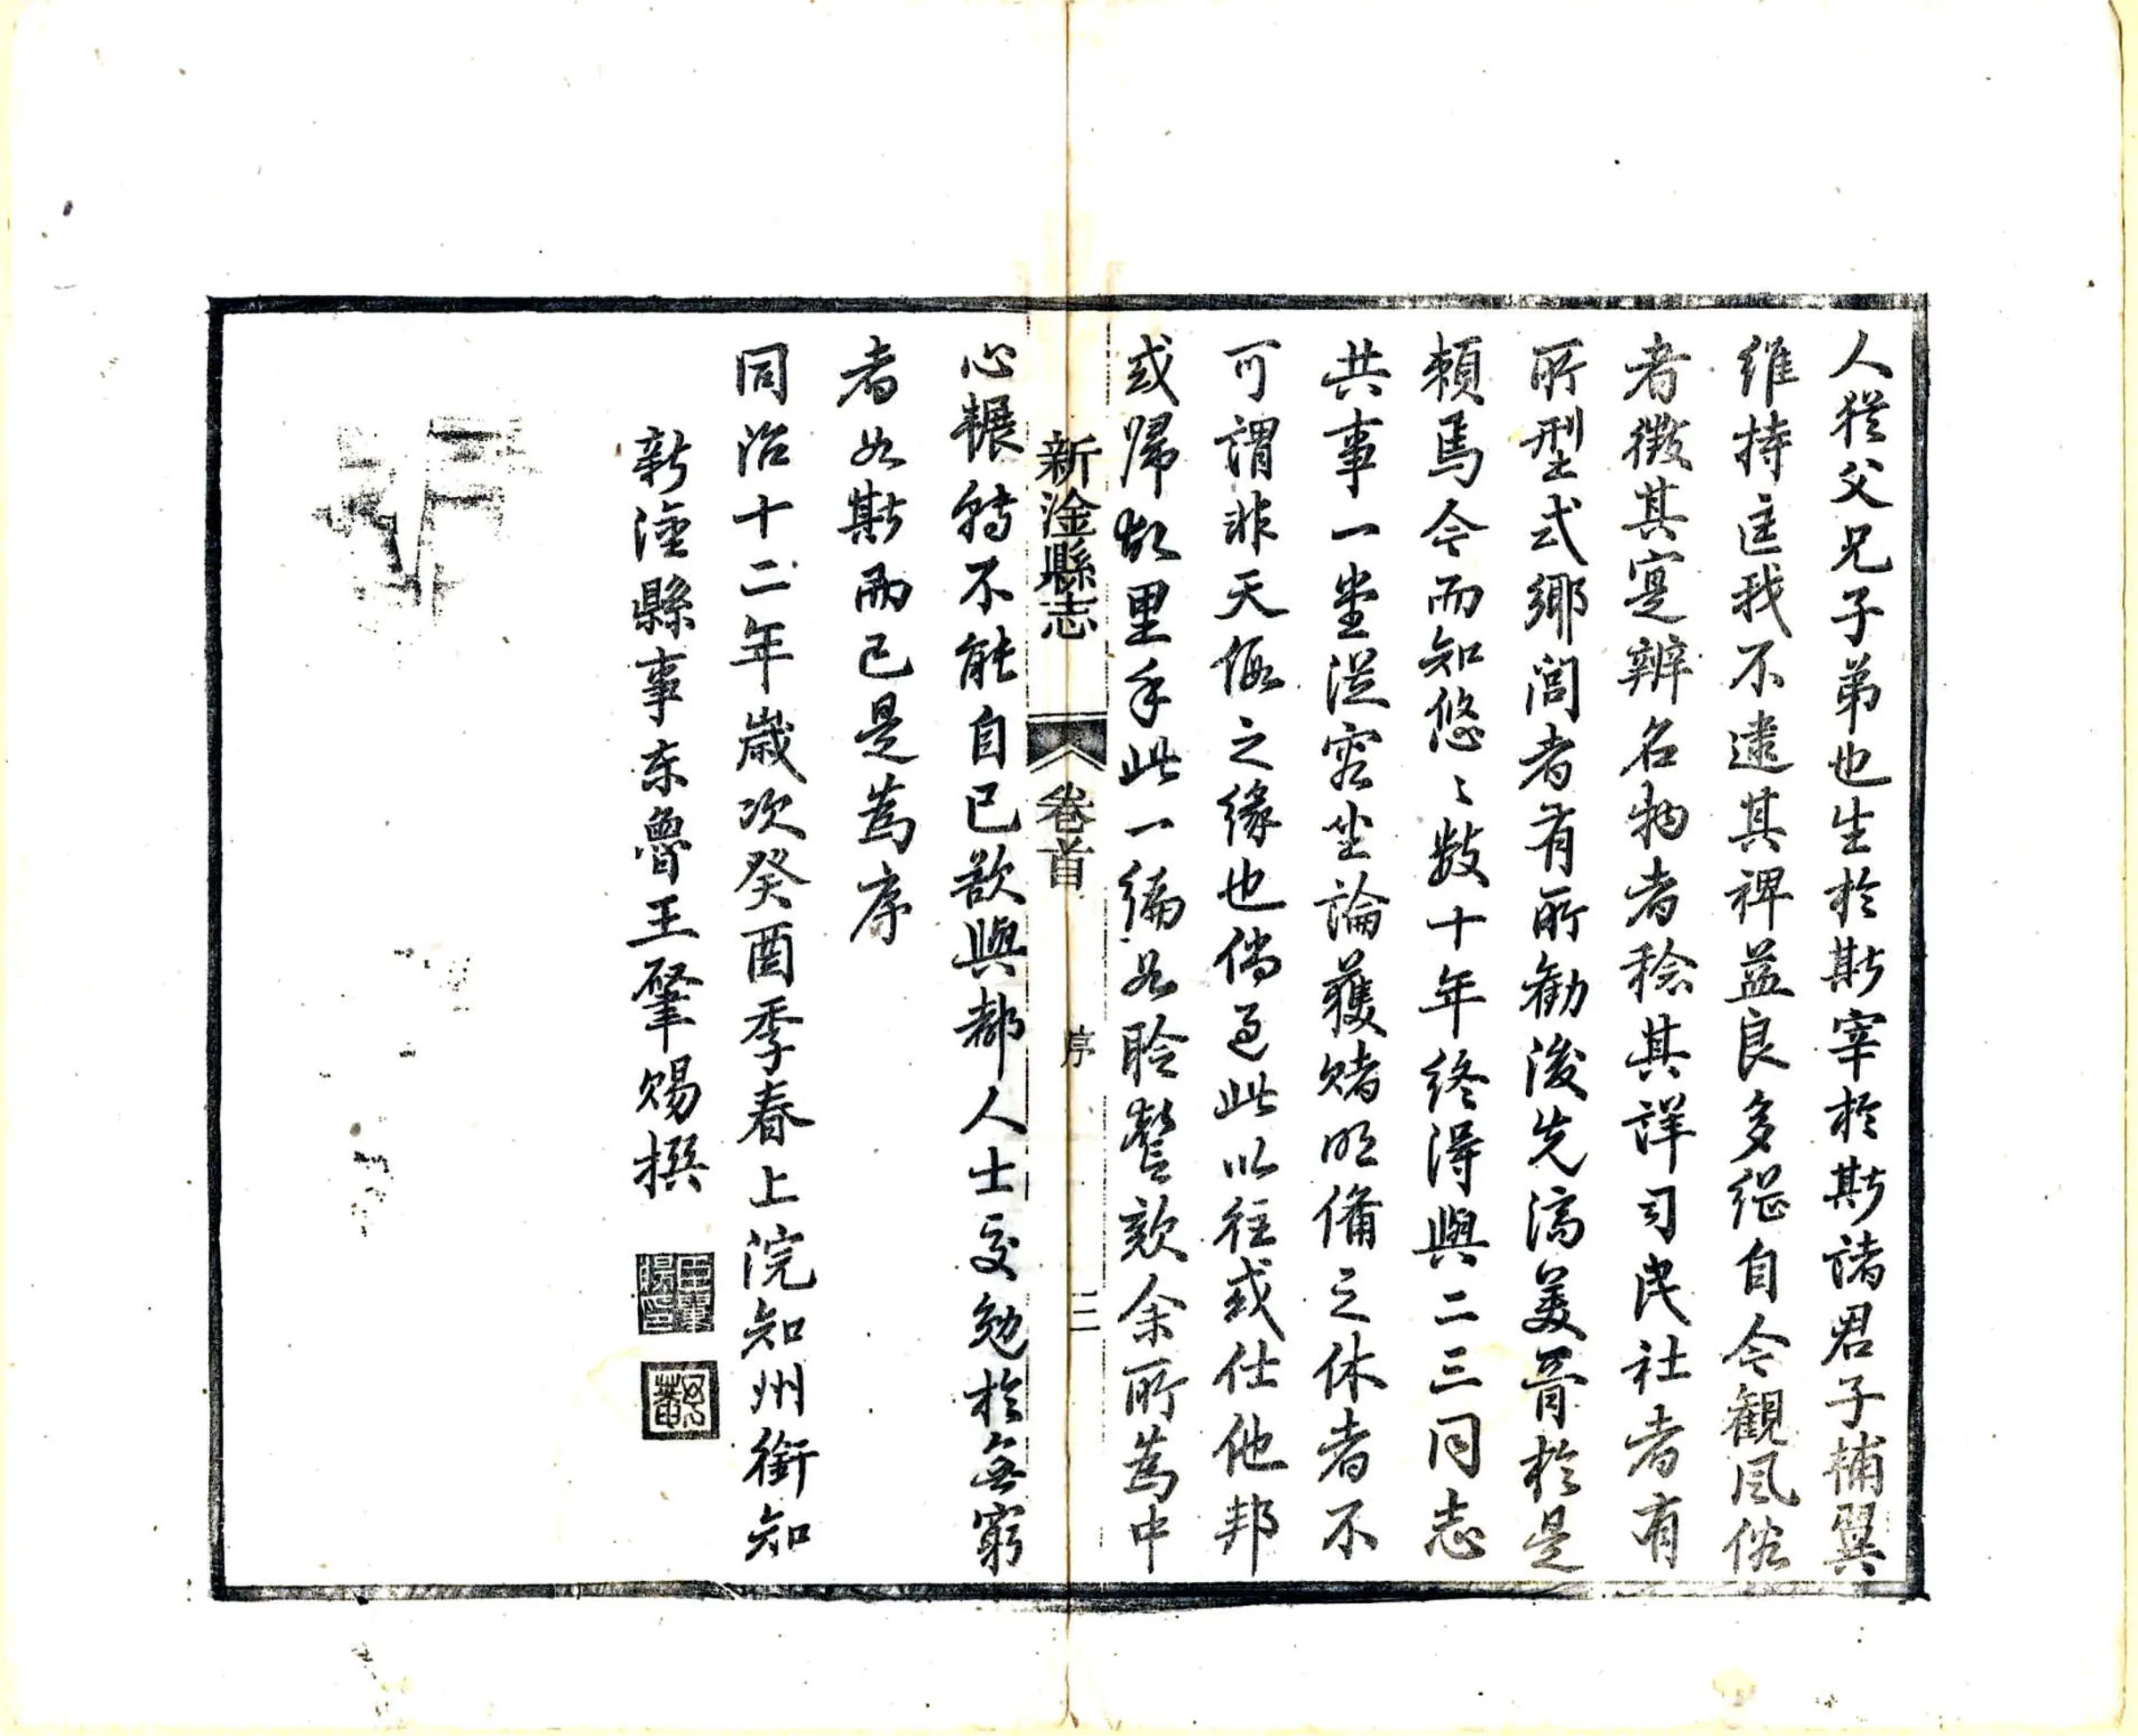 人猶父兄子弟也生於斯宰於斯諸君子補翼
維持匡我不逮其裨益良多繼自今觀風俗
者徵其寔辨名物者稔其詳司民社者有
所型式鄉閭者有所勸後先濟美胥於是
賴焉今而知悠〻數十年終得與二三同志
共事一堂從容坐論獲睹明備之休者不
可謂非天假之緣也倘過此以往或仕他邦
或歸故里手此一編如聆謦欬余所為中
新淦縣志 卷首 序 三
心輾轉不能自已欲與都人士交勉於無窮
者如斯而已是為序
同治十二年歲次癸酉季春上浣知州銜知
新淦縣事東魯王肇賜撰
王肇賜印